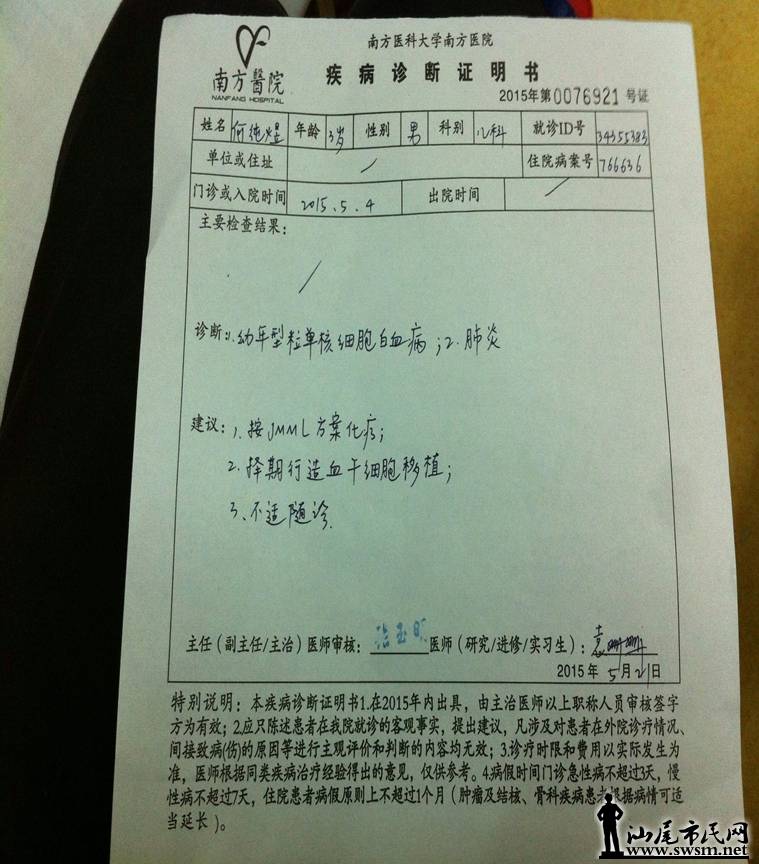 南方医科大学南方医院
南方醫院
NANFANG HOSPITAL
疾病诊断证明书
2015年第0076921号证
姓名 何纯煜 年龄 3岁 性别 男 科别 儿科 就诊ID号 34355383
单位或住址 / 住院病案号 766636
门诊或入院时间 2015.5.4 出院时间 /
主要检查结果:
/
诊断:1.幼年型粒单核细胞白血病;2.肺炎
建议:1.按JMML方案化疗;
2.择期行造血干细胞移植;
3.不适随诊.
主任(副主任/主治)医师审核: 医师(研究/进修/实习生):袁
2015年5月21日
特别说明:本疾病诊断证明书1.在2015年内出具,由主治医师以上职称人员审核签字
方为有效;2.应只陈述患者在我院就诊的客观事实,提出建议,凡涉及对患者在外院诊疗情况、
间接致病(伤)的原因等进行主观评价和判断的内容均无效;3.诊疗时限和费用以实际发生为
准,医师根据同类疾病治疗经验得出的意见,仅供参考。4.病假时间门诊急性病不超过3天,慢
性病不超过7天,住院患者病假原则上不超过1个月(肿瘤及结核、骨科疾病患者根据病情可适
当延长)。
汕尾市民网
www.swsm.net